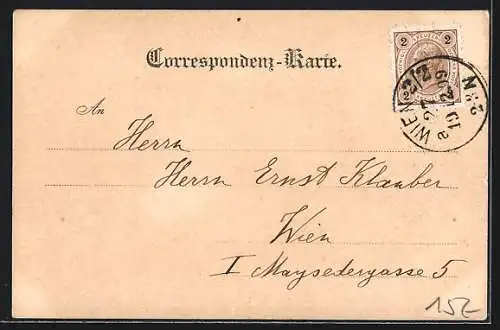 Correspondenz-Karte.
2 2
WIEN
An
Herrn
Herrn Ernst Klauber
Wien
I Maysedergasse 5